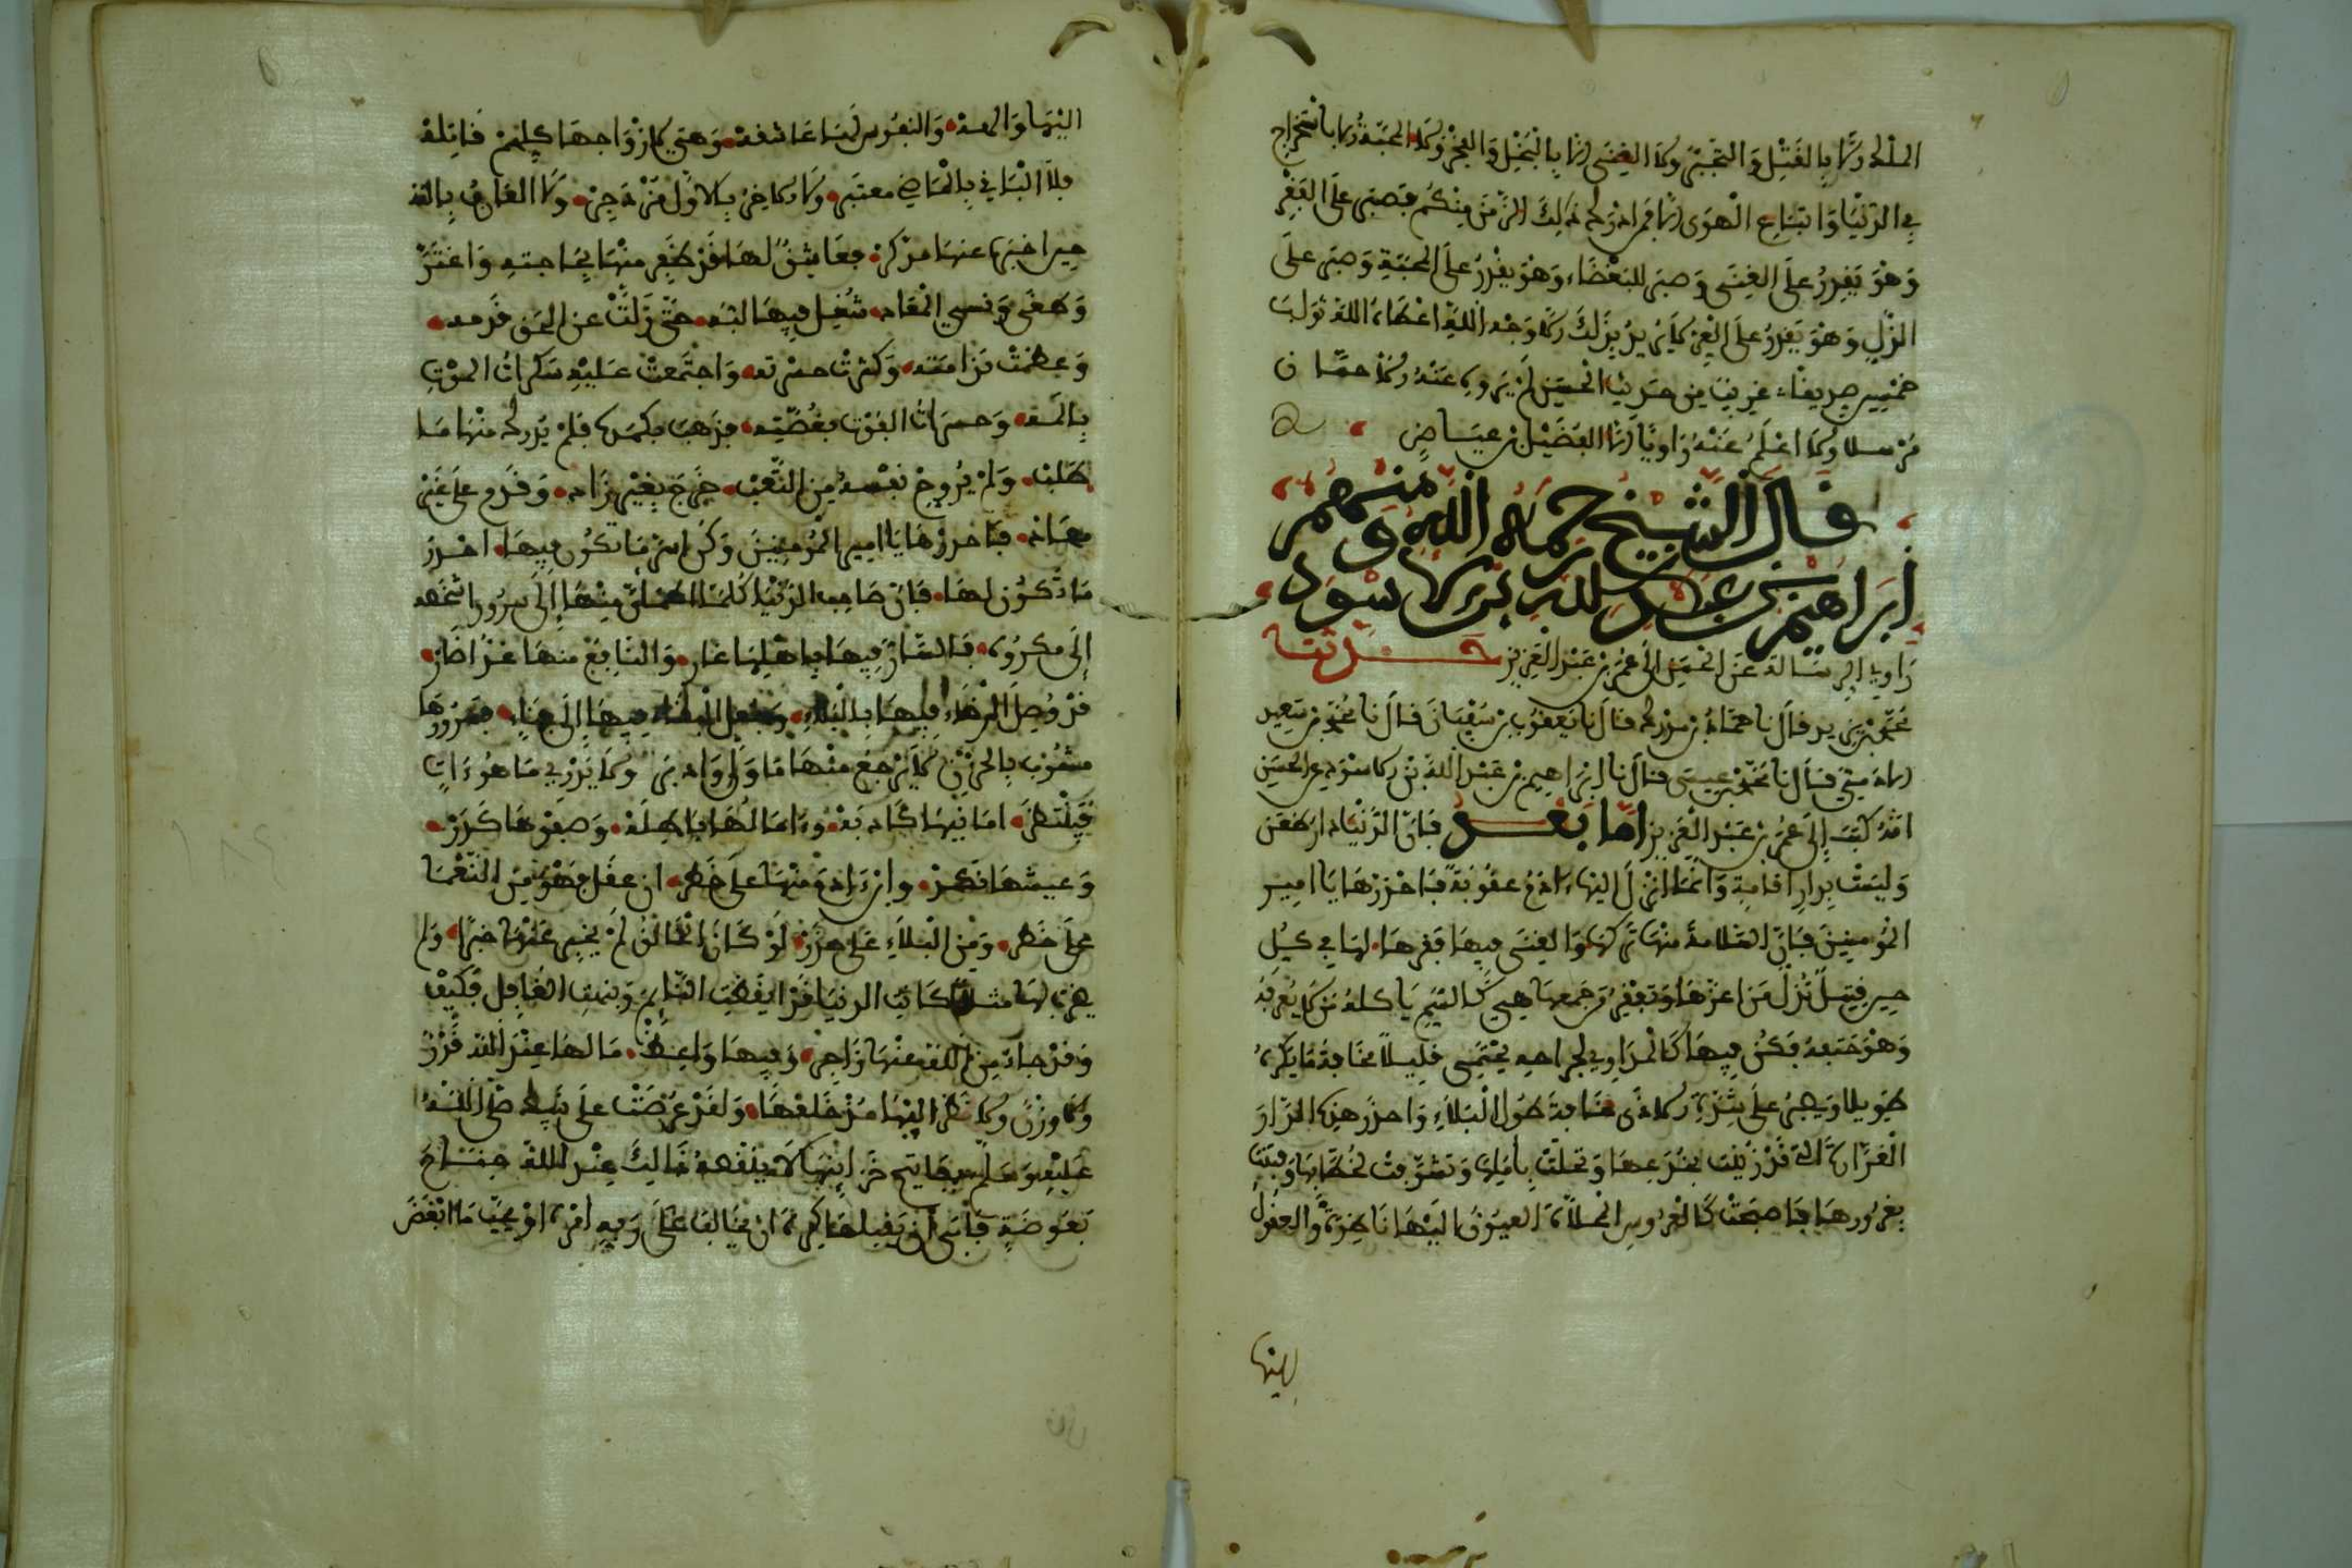 الملك إلا بالقتل والتجبر ولا الغنى إلا بالبخل والفخر ولا المحبة إلا باستخراج
في الدنيا واتباع الهوى إلا فمن أدرك ذلك الزمن منكم فصبر على الفقر
وهو يقدر على الغنى وصبر للبغضاء وهو يقدر على المحبة وصبر على
الذل وهو يقدر على العز لا يريد بذلك إلا وجه الله أعطاه الله ثواب
خمسين صديقا غريب من حديث الحسن لم يروه عنه إلا حسان
مرسلا ولا أعلم عنه راويا إلا الفضيل بن عياض
قال الشيخ رحمه الله ومنهم
إبراهيم بن عبد الله بن الأسود
راوية الرسالة عن الحسن إلى عمر بن عبد العزيز حدثنا
محمد بن بدر قال نا حماد بن مدرك قال نا يعقوب بن سفيان قال نا محمد بن سعيد
قال نا محمد بن عيسى قال نا إبراهيم بن عبد الله بن الأسود عن الحسن
أنه كتب إلى عمر بن عبد العزيز أما بعد فإن الدنيا دار ظعن
وليست بدار إقامة وإنما أنزل إليها آدم عقوبة فاحذرها يا أمير
المؤمنين فإن السلامة منها تركها والغنى فيها فقرها لها في كل
حين قتيل تذل من أعزها وتفقر من جمعها هي كالسم يأكله من لا يعرفه
وهو حتفه فكن فيها كالمداوي لجراحه يحتمي قليلا مخافة ما يكره
طويلا ويصبر على شدة الأذى مخافة طول البلاء واحذر هذه الدار
الغرارة التي قد زينت بخدعها وتحلت بآمالها وتشوفت لخطابها وفتنت
بغرورها فأصبحت كالعروس المجلاة العيون إليها ناظرة والعقول
إليها
إليها والهة والنفوس لها عاشقة وهي لأزواجها كلهم قاتلة
فلا الباقي بالماضي معتبر ولا الآخر بالأول مزدجر ولا العارف بالله
حين أخبره عنها مدكر فعاشق لها قد ظفر منها بحاجته واغتر
وطغى ونسي المعاد شغل فيها لبه حتى زلت عن الحق قدمه
وعظمت ندامته وكثرت حسرته واجتمعت عليه سكرات الموت
بألمه وحسرات الفوت بغصته فذهب بكمده فلم يدرك منها ما
طلب ولم يروح نفسه من التعب خرج بغير زاد وقدم على غير
مهاد فاحذرها يا أمير المؤمنين وكن أسر ما تكون فيها احذر
ما تكون لها فإن صاحب الدنيا كلما اطمأن منها إلى سرور أشخصه
إلى مكروه فالسار فيها بأهلها غار والنافع منها غدا ضار
قد وصل الرخاء فيها بالبلاء وجعل البقاء فيها إلى فناء فسرورها
مشوب بالحزن لا يرجع منها ما ولى وأدبر ولا يدرى ما هو آت
فينتظر أمانيها كاذبة وآمالها باطلة وصفوها كدر
وعيشها نكد وابن آدم منها على خطر إن عقل فهو من النعما
على خطر ومن البلاء على حذر لو كان الخالق لم يخبر عنها خبرا ولم
يضرب لها مثلا لكانت الدنيا قد أيقظت النائم ونبهت الغافل فكيف
وقد جاء من الله عنها زاجر وفيها واعظ ما لها عند الله قدر
ولا وزن ولا نظر إليها منذ خلقها ولقد عرضت على نبيك صلى الله
عليه وسلم بمفاتيح خزائنها لا ينقصه ذلك عند الله جناح
بعوضة فأبى أن يقبلها كره أن يخالف على ربه أمره أو يحب ما أبغض